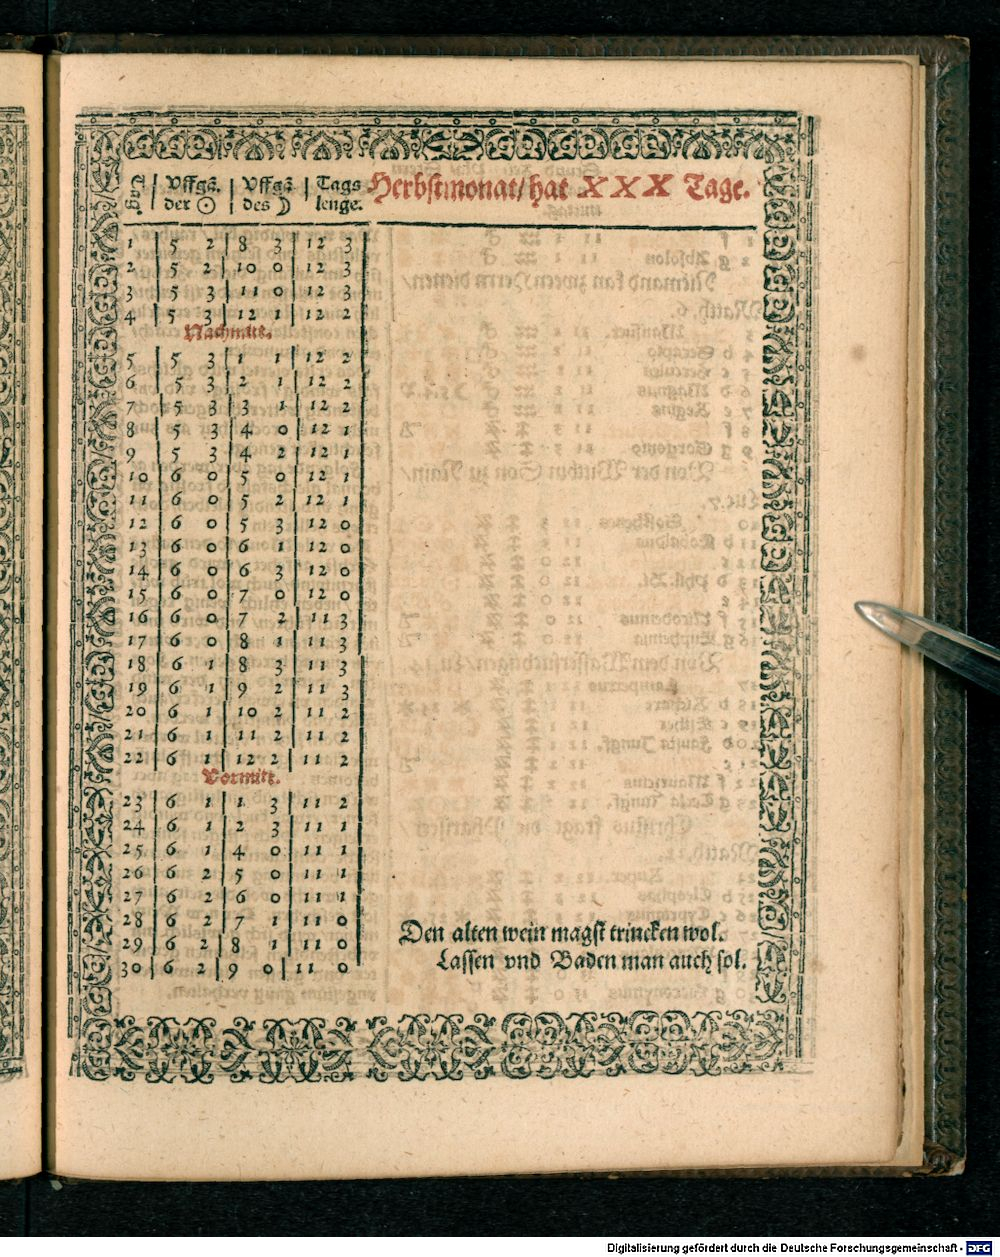 Tag | Vffgā. | Vffgā | Tags
der ☉ | des ☽ | lenge.
Herbstmonat/hat XXX Tage.
1 | 5 2 | 8 3 | 12 3
2 | 5 2 | 10 0 | 12 3
3 | 5 3 | 11 0 | 12 3
4 | 5 3 | 12 1 | 12 2
Nachmitt.
5 | 5 3 | 1 1 | 12 2
6 | 5 3 | 2 1 | 12 2
7 | 5 3 | 3 1 | 12 2
8 | 5 3 | 4 0 | 12 1
9 | 5 3 | 4 2 | 12 1
10 | 6 0 | 5 0 | 12 1
11 | 6 0 | 5 2 | 12 1
12 | 6 0 | 5 3 | 12 0
13 | 6 0 | 6 1 | 12 0
14 | 6 0 | 6 3 | 12 0
15 | 6 0 | 7 0 | 12 0
16 | 6 0 | 7 2 | 11 3
17 | 6 0 | 8 1 | 11 3
18 | 6 1 | 8 3 | 11 3
19 | 6 1 | 9 2 | 11 3
20 | 6 1 | 10 2 | 11 2
21 | 6 1 | 11 2 | 11 2
22 | 6 1 | 12 2 | 11 2
Vormitt.
23 | 6 1 | 1 3 | 11 2
24 | 6 1 | 2 3 | 11 1
25 | 6 1 | 4 0 | 11 1
26 | 6 2 | 5 0 | 11 1
27 | 6 2 | 6 0 | 11 1
28 | 6 2 | 7 1 | 11 0
29 | 6 2 | 8 1 | 11 0
30 | 6 2 | 9 0 | 11 0
Den alten wein magst trincken wol.
Lassen vnd Baden man auch sol.
Digitalisierung gefördert durch die Deutsche Forschungsgemeinschaft - DFG